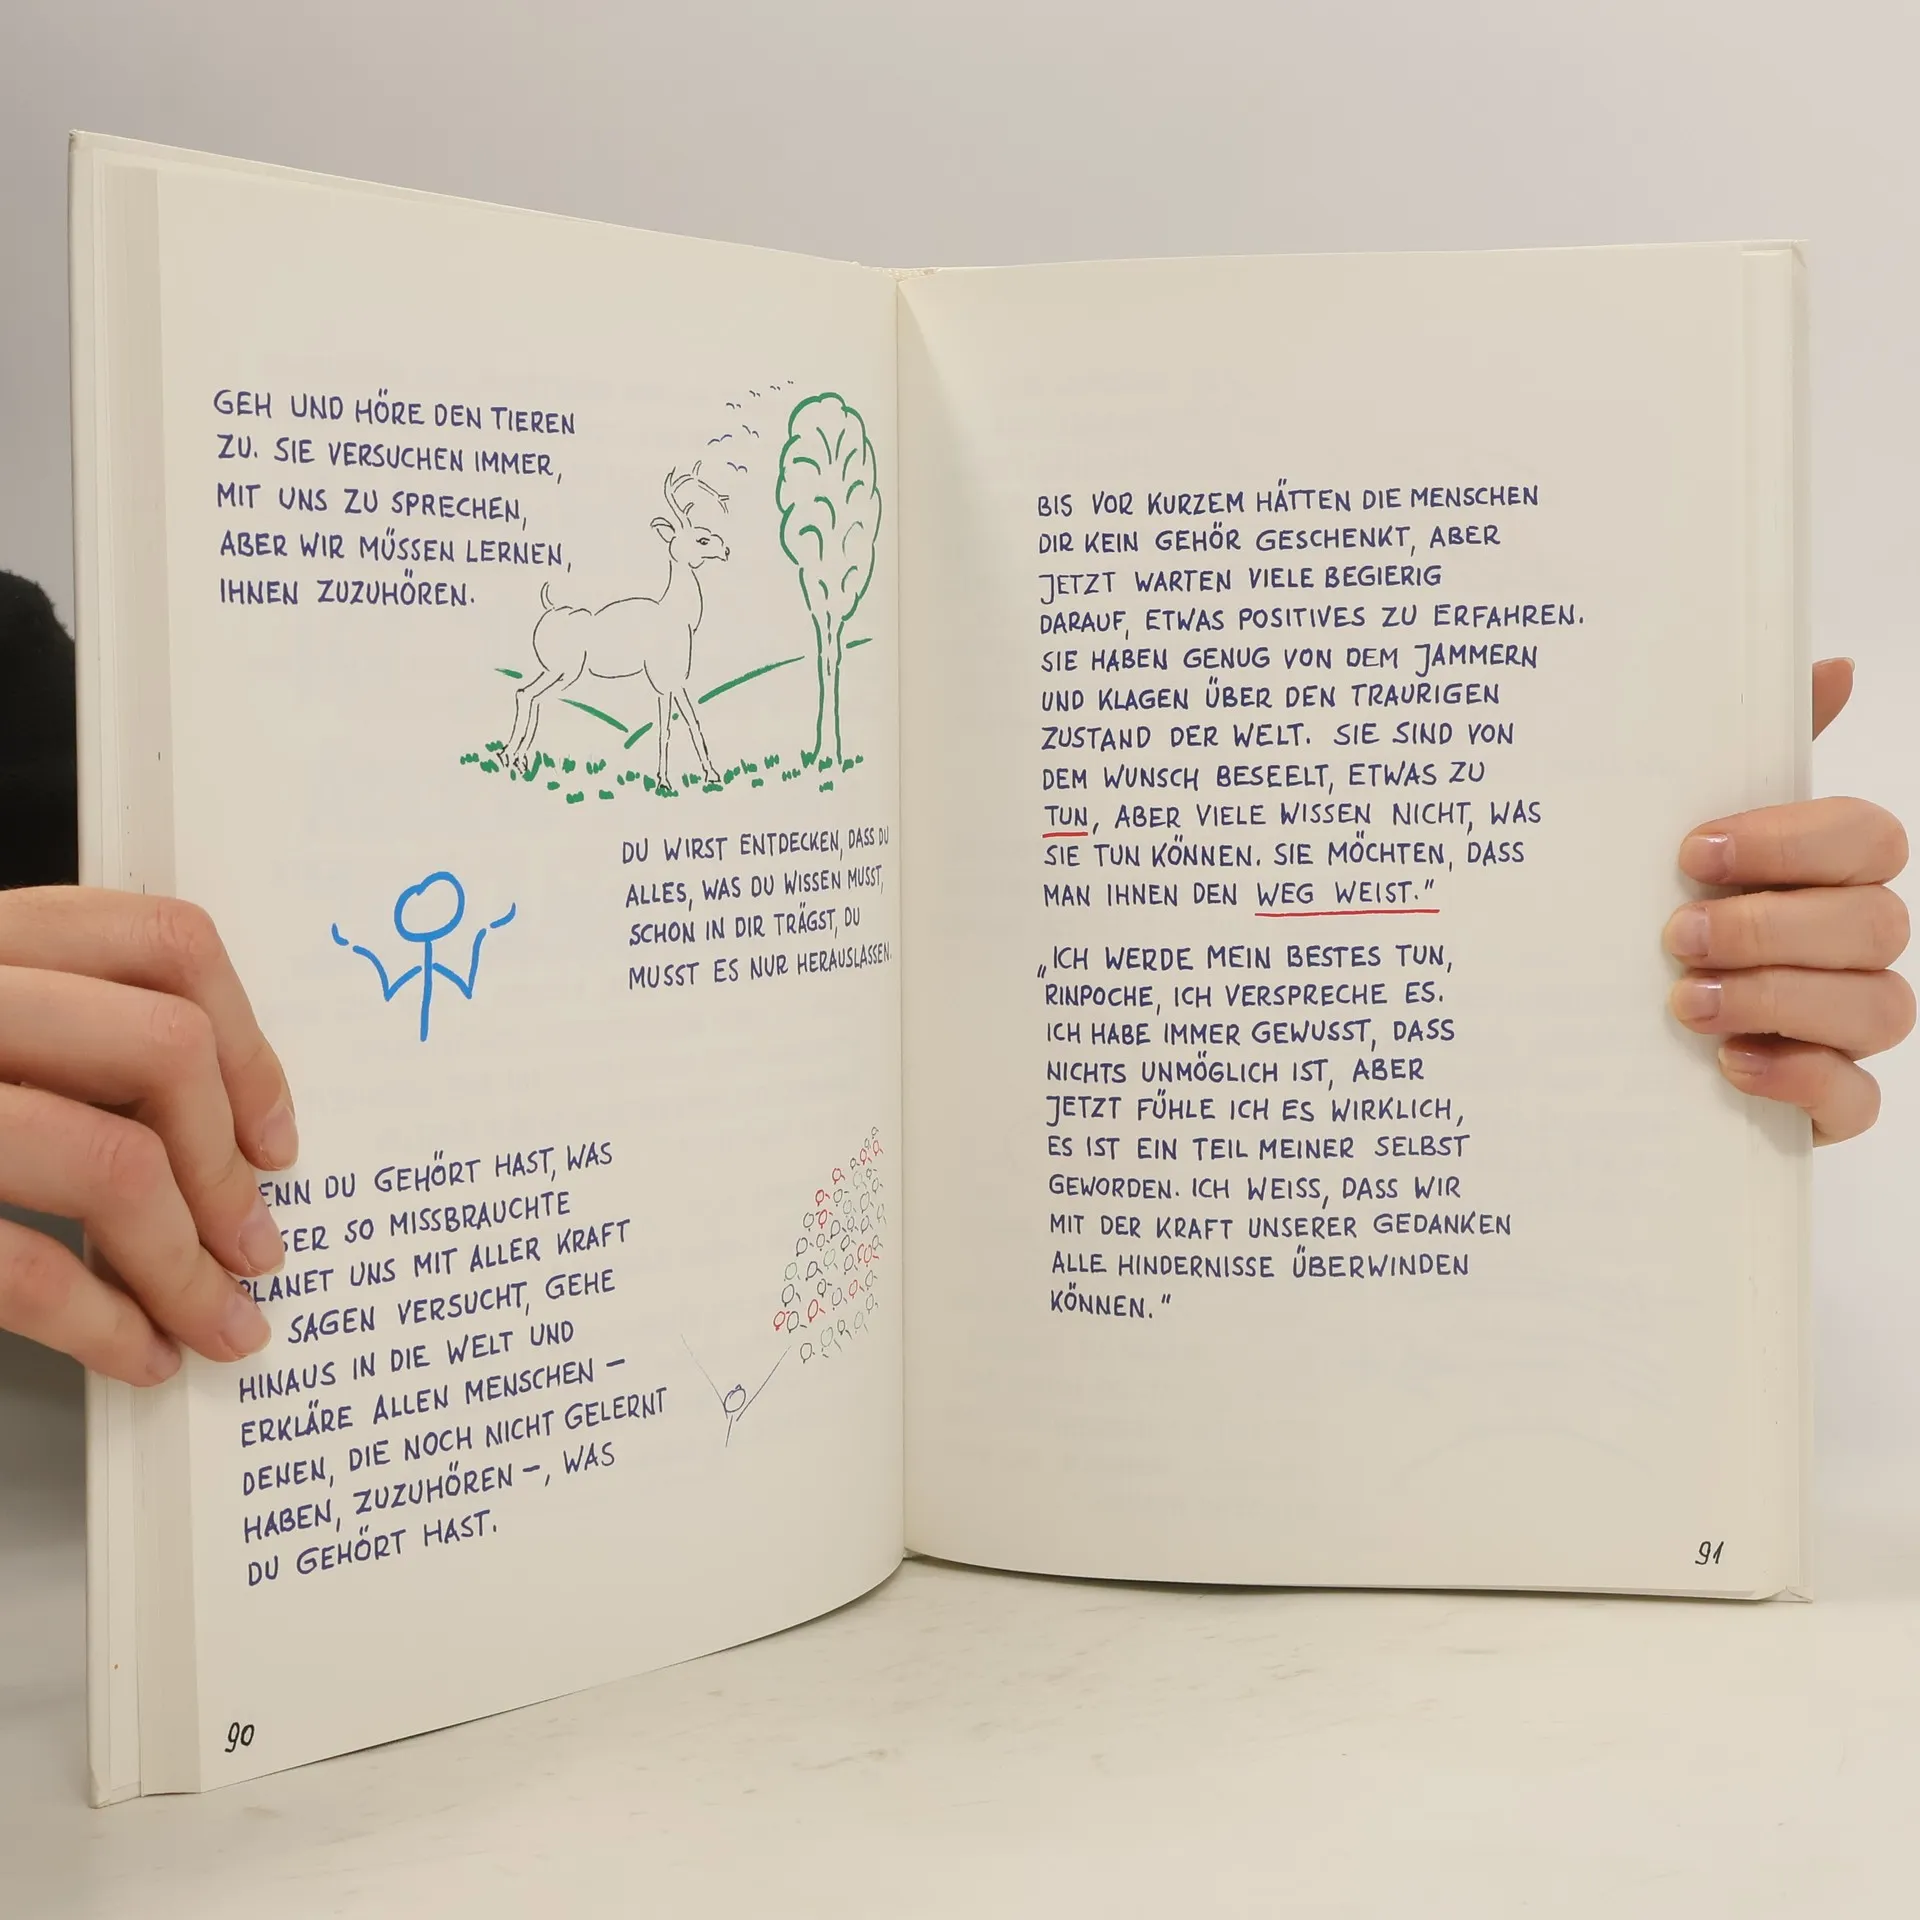 GEH UND HÖRE DEN TIEREN
ZU. SIE VERSUCHEN IMMER,
MIT UNS ZU SPRECHEN,
ABER WIR MÜSSEN LERNEN,
IHNEN ZUZUHÖREN.
DU WIRST ENTDECKEN, DASS DU
ALLES, WAS DU WISSEN MUSST,
SCHON IN DIR TRÄGST, DU
MUSST ES NUR HERAUSLASSEN.
DU GEHÖRT HAST, WAS
SO MISSBRAUCHTE
PLANET UNS MIT ALLER KRAFT
SAGEN VERSUCHT, GEHE
HINAUS IN DIE WELT UND
ERKLÄRE ALLEN MENSCHEN –
DENEN, DIE NOCH NICHT GELERNT
HABEN, ZUZUHÖREN –, WAS
DU GEHÖRT HAST.
90
BIS VOR KURZEM HÄTTEN DIE MENSCHEN
DIR KEIN GEHÖR GESCHENKT, ABER
JETZT WARTEN VIELE BEGIERIG
DARAUF, ETWAS POSITIVES ZU ERFAHREN.
SIE HABEN GENUG VON DEM JAMMERN
UND KLAGEN ÜBER DEN TRAURIGEN
ZUSTAND DER WELT. SIE SIND VON
DEM WUNSCH BESEELT, ETWAS ZU
TUN, ABER VIELE WISSEN NICHT, WAS
SIE TUN KÖNNEN. SIE MÖCHTEN, DASS
MAN IHNEN DEN WEG WEIST."
„ICH WERDE MEIN BESTES TUN,
RINPOCHE, ICH VERSPRECHE ES.
ICH HABE IMMER GEWUSST, DASS
NICHTS UNMÖGLICH IST, ABER
JETZT FÜHLE ICH ES WIRKLICH,
ES IST EIN TEIL MEINER SELBST
GEWORDEN. ICH WEISS, DASS WIR
MIT DER KRAFT UNSERER GEDANKEN
ALLE HINDERNISSE ÜBERWINDEN
KÖNNEN."
91